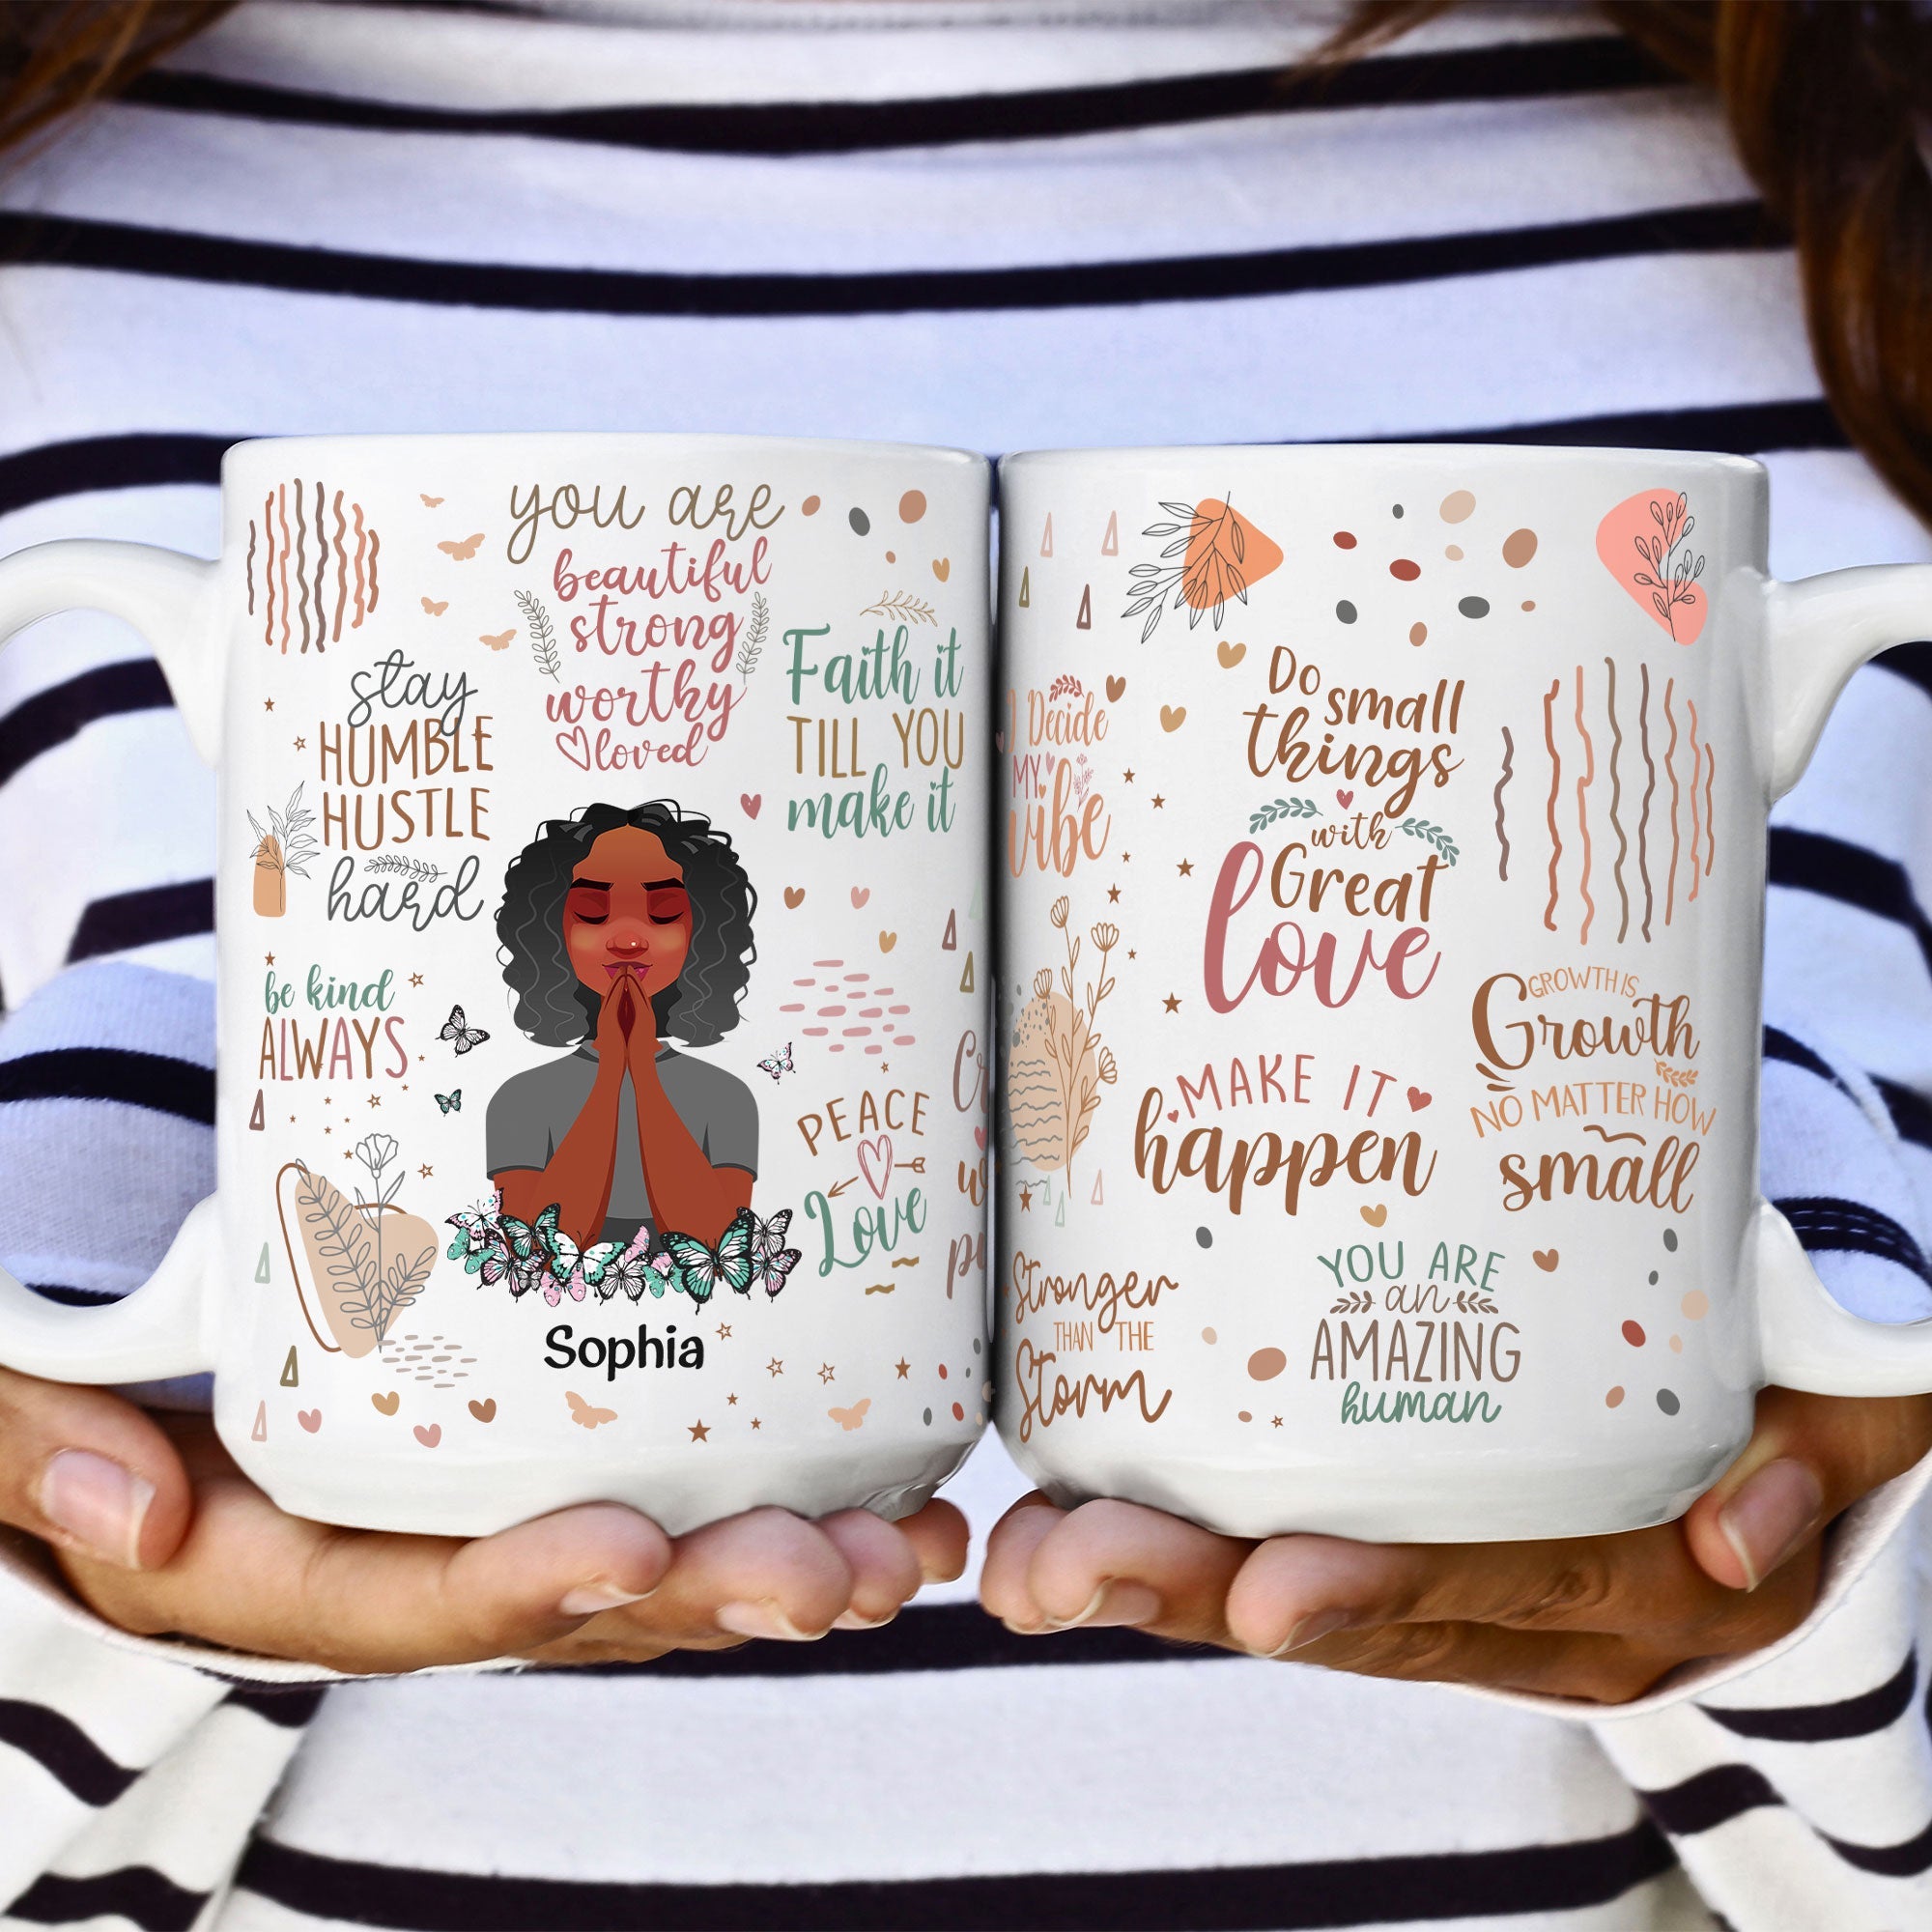 you are
beautiful
strong
worthy
loved
stay
HUMBLE
HUSTLE
hard
Faith it
TILL YOU
make it
be kind
ALWAYS
PEACE
Love
Sophia
I Decide
MY
vibe
Do small
things
with
Great
love
GROWTH IS
Growth
NO MATTER HOW
small
MAKE IT
happen
Stronger
THAN THE
Storm
YOU ARE
an
AMAZING
human